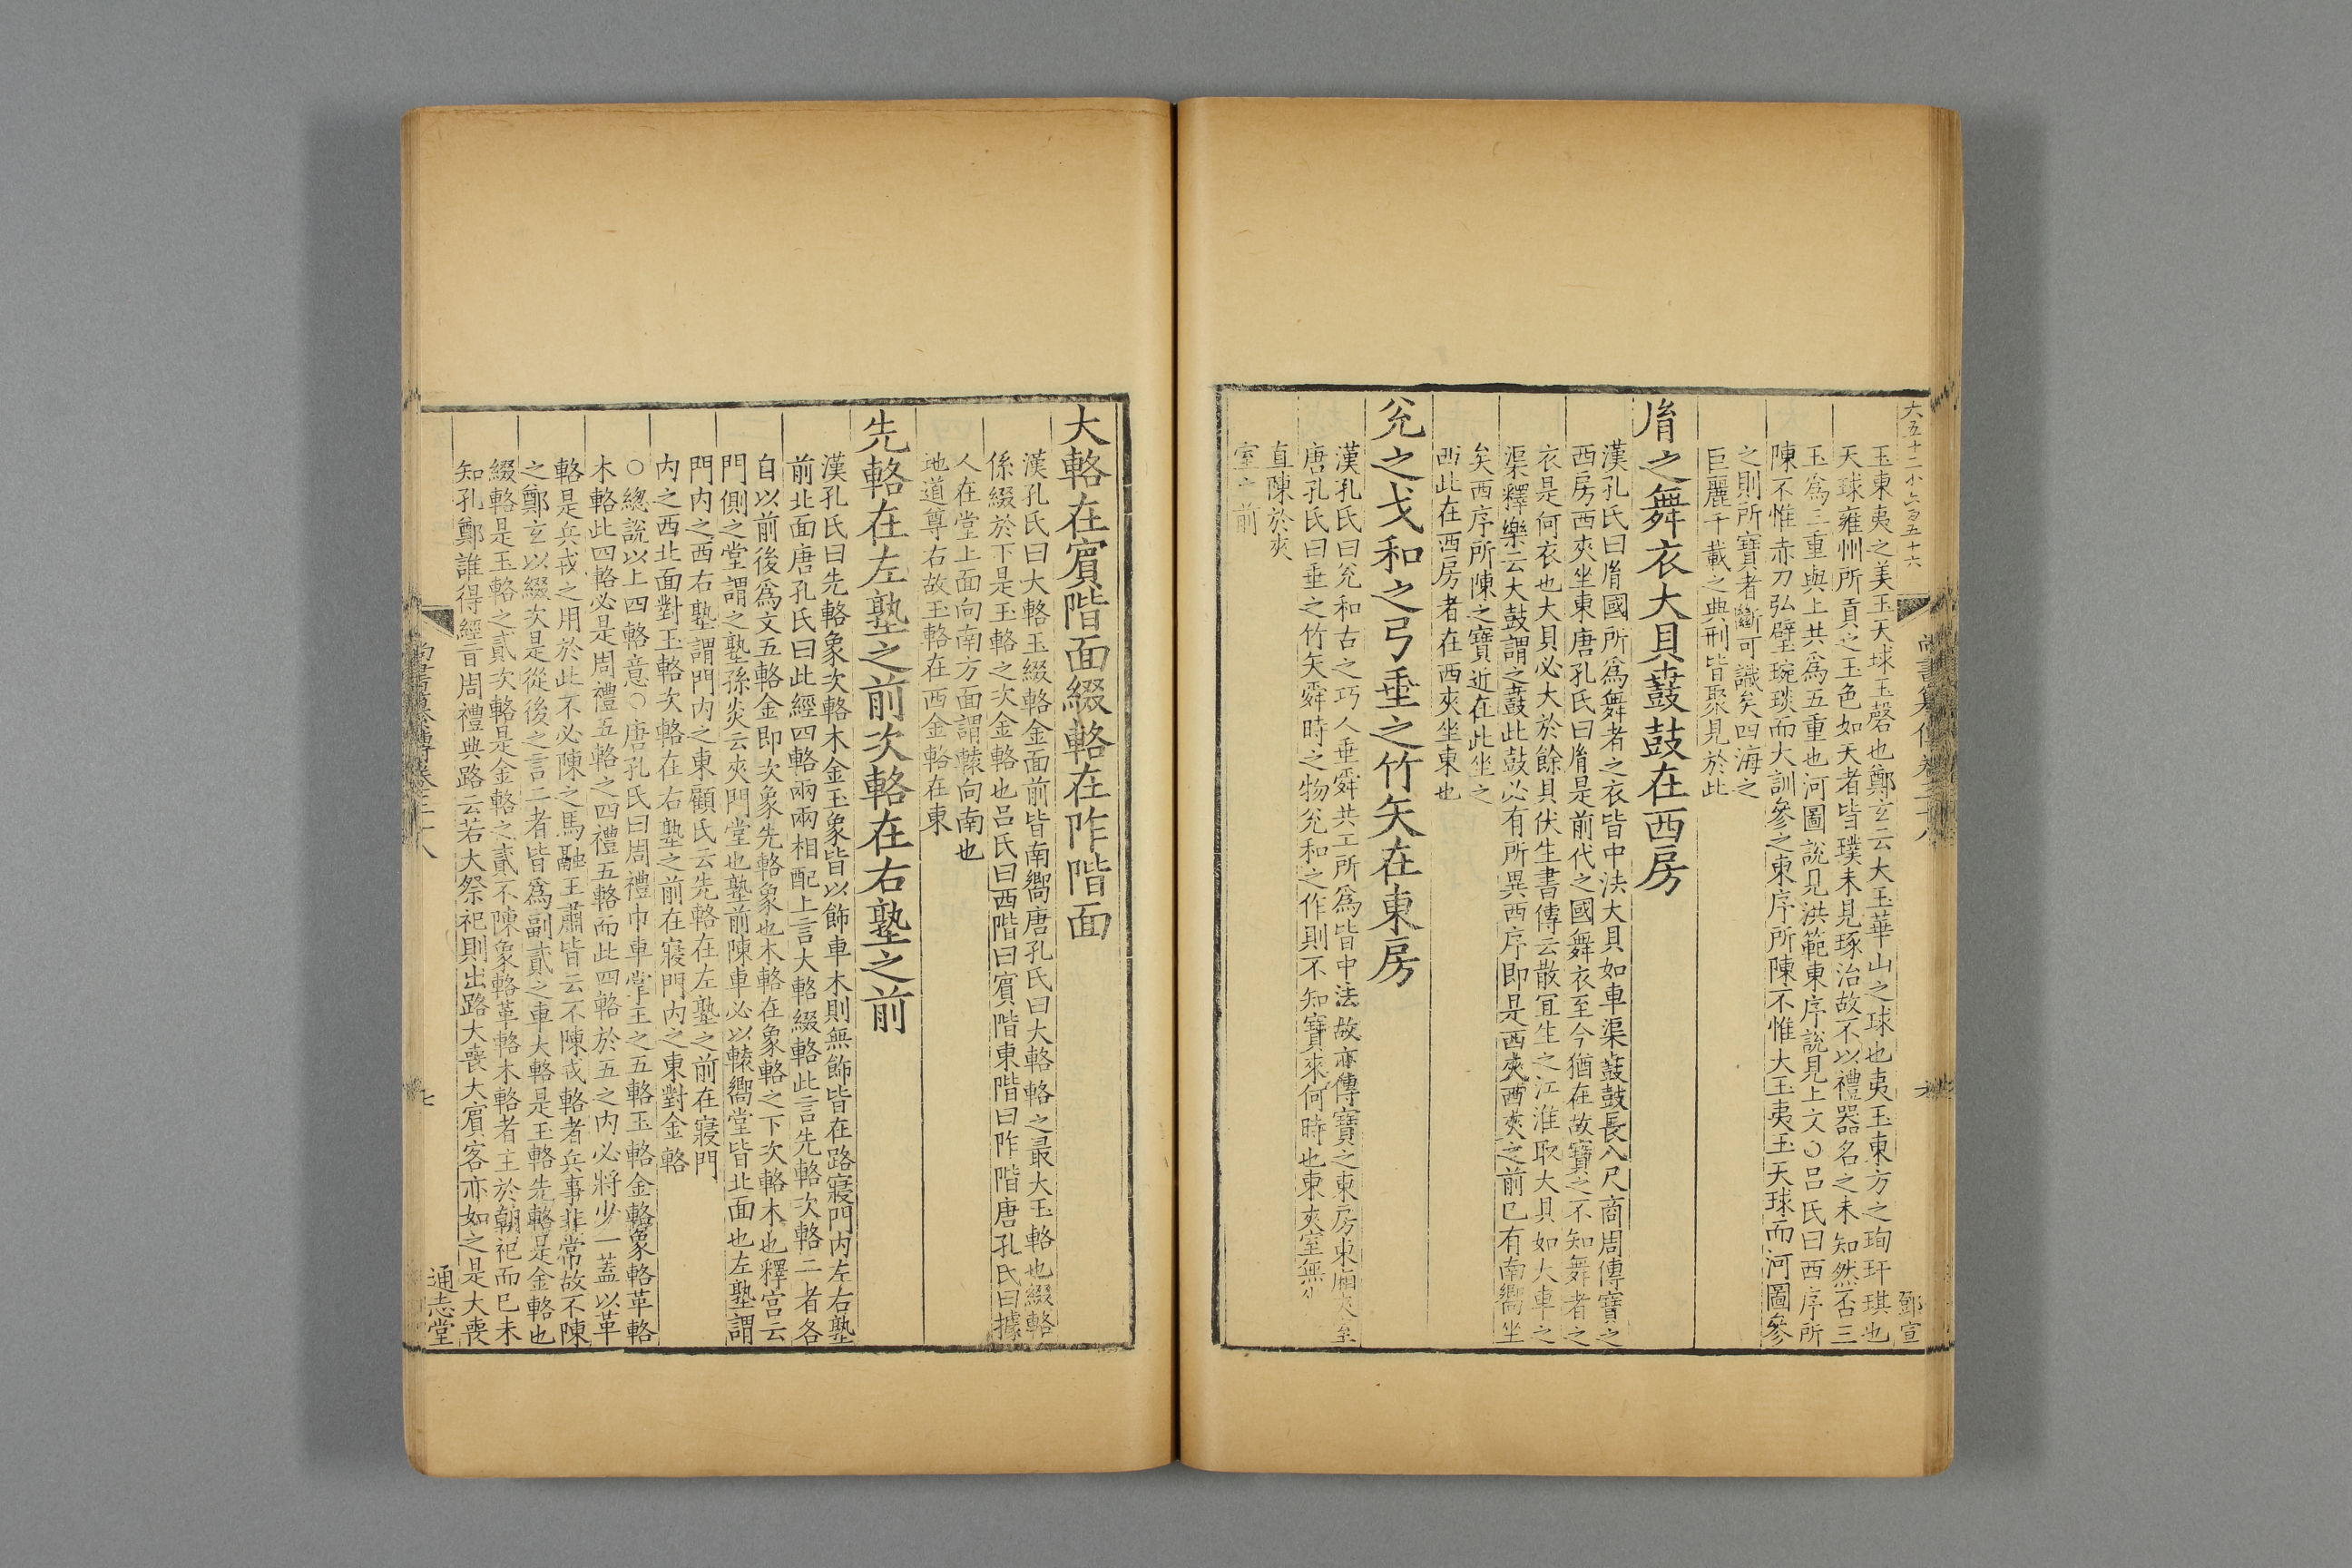 六五十二小六百五十六
鄧宣
玉東夷之美玉天球玉磬也鄭玄云大玉華山之球也夷玉東方之珣玗琪也
天球雍州所貢之玉色如天者皆璞未見琢治故不以禮器名之未知然否三
玉爲三重與上共爲五重也河圖說見洪範東序說見上文○呂氏曰西序所
陳不惟赤刀弘璧琬琰而大訓參之東序所陳不惟大玉夷玉天球而河圖參
之則所寶者斷可識矣四海之
巨麗千載之典刑皆聚見於此
胤之舞衣大貝鼖鼓在西房
漢孔氏曰胤國所爲舞者之衣皆中法大貝如車渠鼖鼓長八尺商周傳寶之
西房西夾坐東唐孔氏曰胤是前代之國舞衣至今猶在故寶之不知舞者之
衣是何衣也大貝必大於餘貝伏生書傳云散冝生之江淮取大貝如大車之
渠釋樂云大鼓謂之鼖此鼓必有所異西序即是西夾西夾之前已有南嚮坐
矣西序所陳之寶近在此坐之
西此在西房者在西夾坐東也
兊之戈和之弓垂之竹矢在東房
漢孔氏曰兊和古之巧人垂舜共工所爲皆中法故亦傳寶之東房東廂夾室
唐孔氏曰垂之竹矢舜時之物兊和之作則不知寶來何時也東夾室無坐
直陳於夾
室之前
大輅在賔階面綴輅在阼階面
漢孔氏曰大輅玉綴輅金面前皆南嚮唐孔氏曰大輅輅之最大玉輅也綴輅
係綴於下是玉輅之次金輅也呂氏曰西階曰賔階東階曰阼階唐孔氏曰據
人在堂上面向南方面謂轅向南也
地道尊右故玉輅在西金輅在東
先輅在左塾之前次輅在右塾之前
漢孔氏曰先輅象次輅木金玉象皆以飾車木則無飾皆在路寢門内左右塾
前北面唐孔氏曰此經四輅兩兩相配上言大輅綴輅此言先輅次輅二者各
自以前後爲文五輅金即次象先輅象也木輅在象輅之下次輅木也釋宫云
門側之堂謂之塾孫炎云夾門堂也塾前陳車必以轅嚮堂皆北面也左塾謂
門内之西右塾謂門内之東顧氏云先輅在左塾之前在寢門
内之西北面對玉輅次輅在右塾之前在寢門内之東對金輅
○緫說以上四輅意○唐孔氏曰周禮巾車掌王之五輅玉輅金輅象輅革輅
木輅此四輅必是周禮五輅之四禮五輅而此四輅於五之内必將少一蓋以革
輅是兵戎之用於此不必陳之馬融王肅皆云不陳戎輅者兵事非常故不陳
之鄭玄以綴次是從後之言二者皆爲副貳之車大輅是玉輅先輅是金輅也
綴輅是玉輅之貳次輅是金輅之貳不陳象輅革輅木輅者主於朝祀而已未
知孔鄭誰得經旨周禮典路云若大祭祀則出路大喪大賔客亦如之是大喪
通志堂